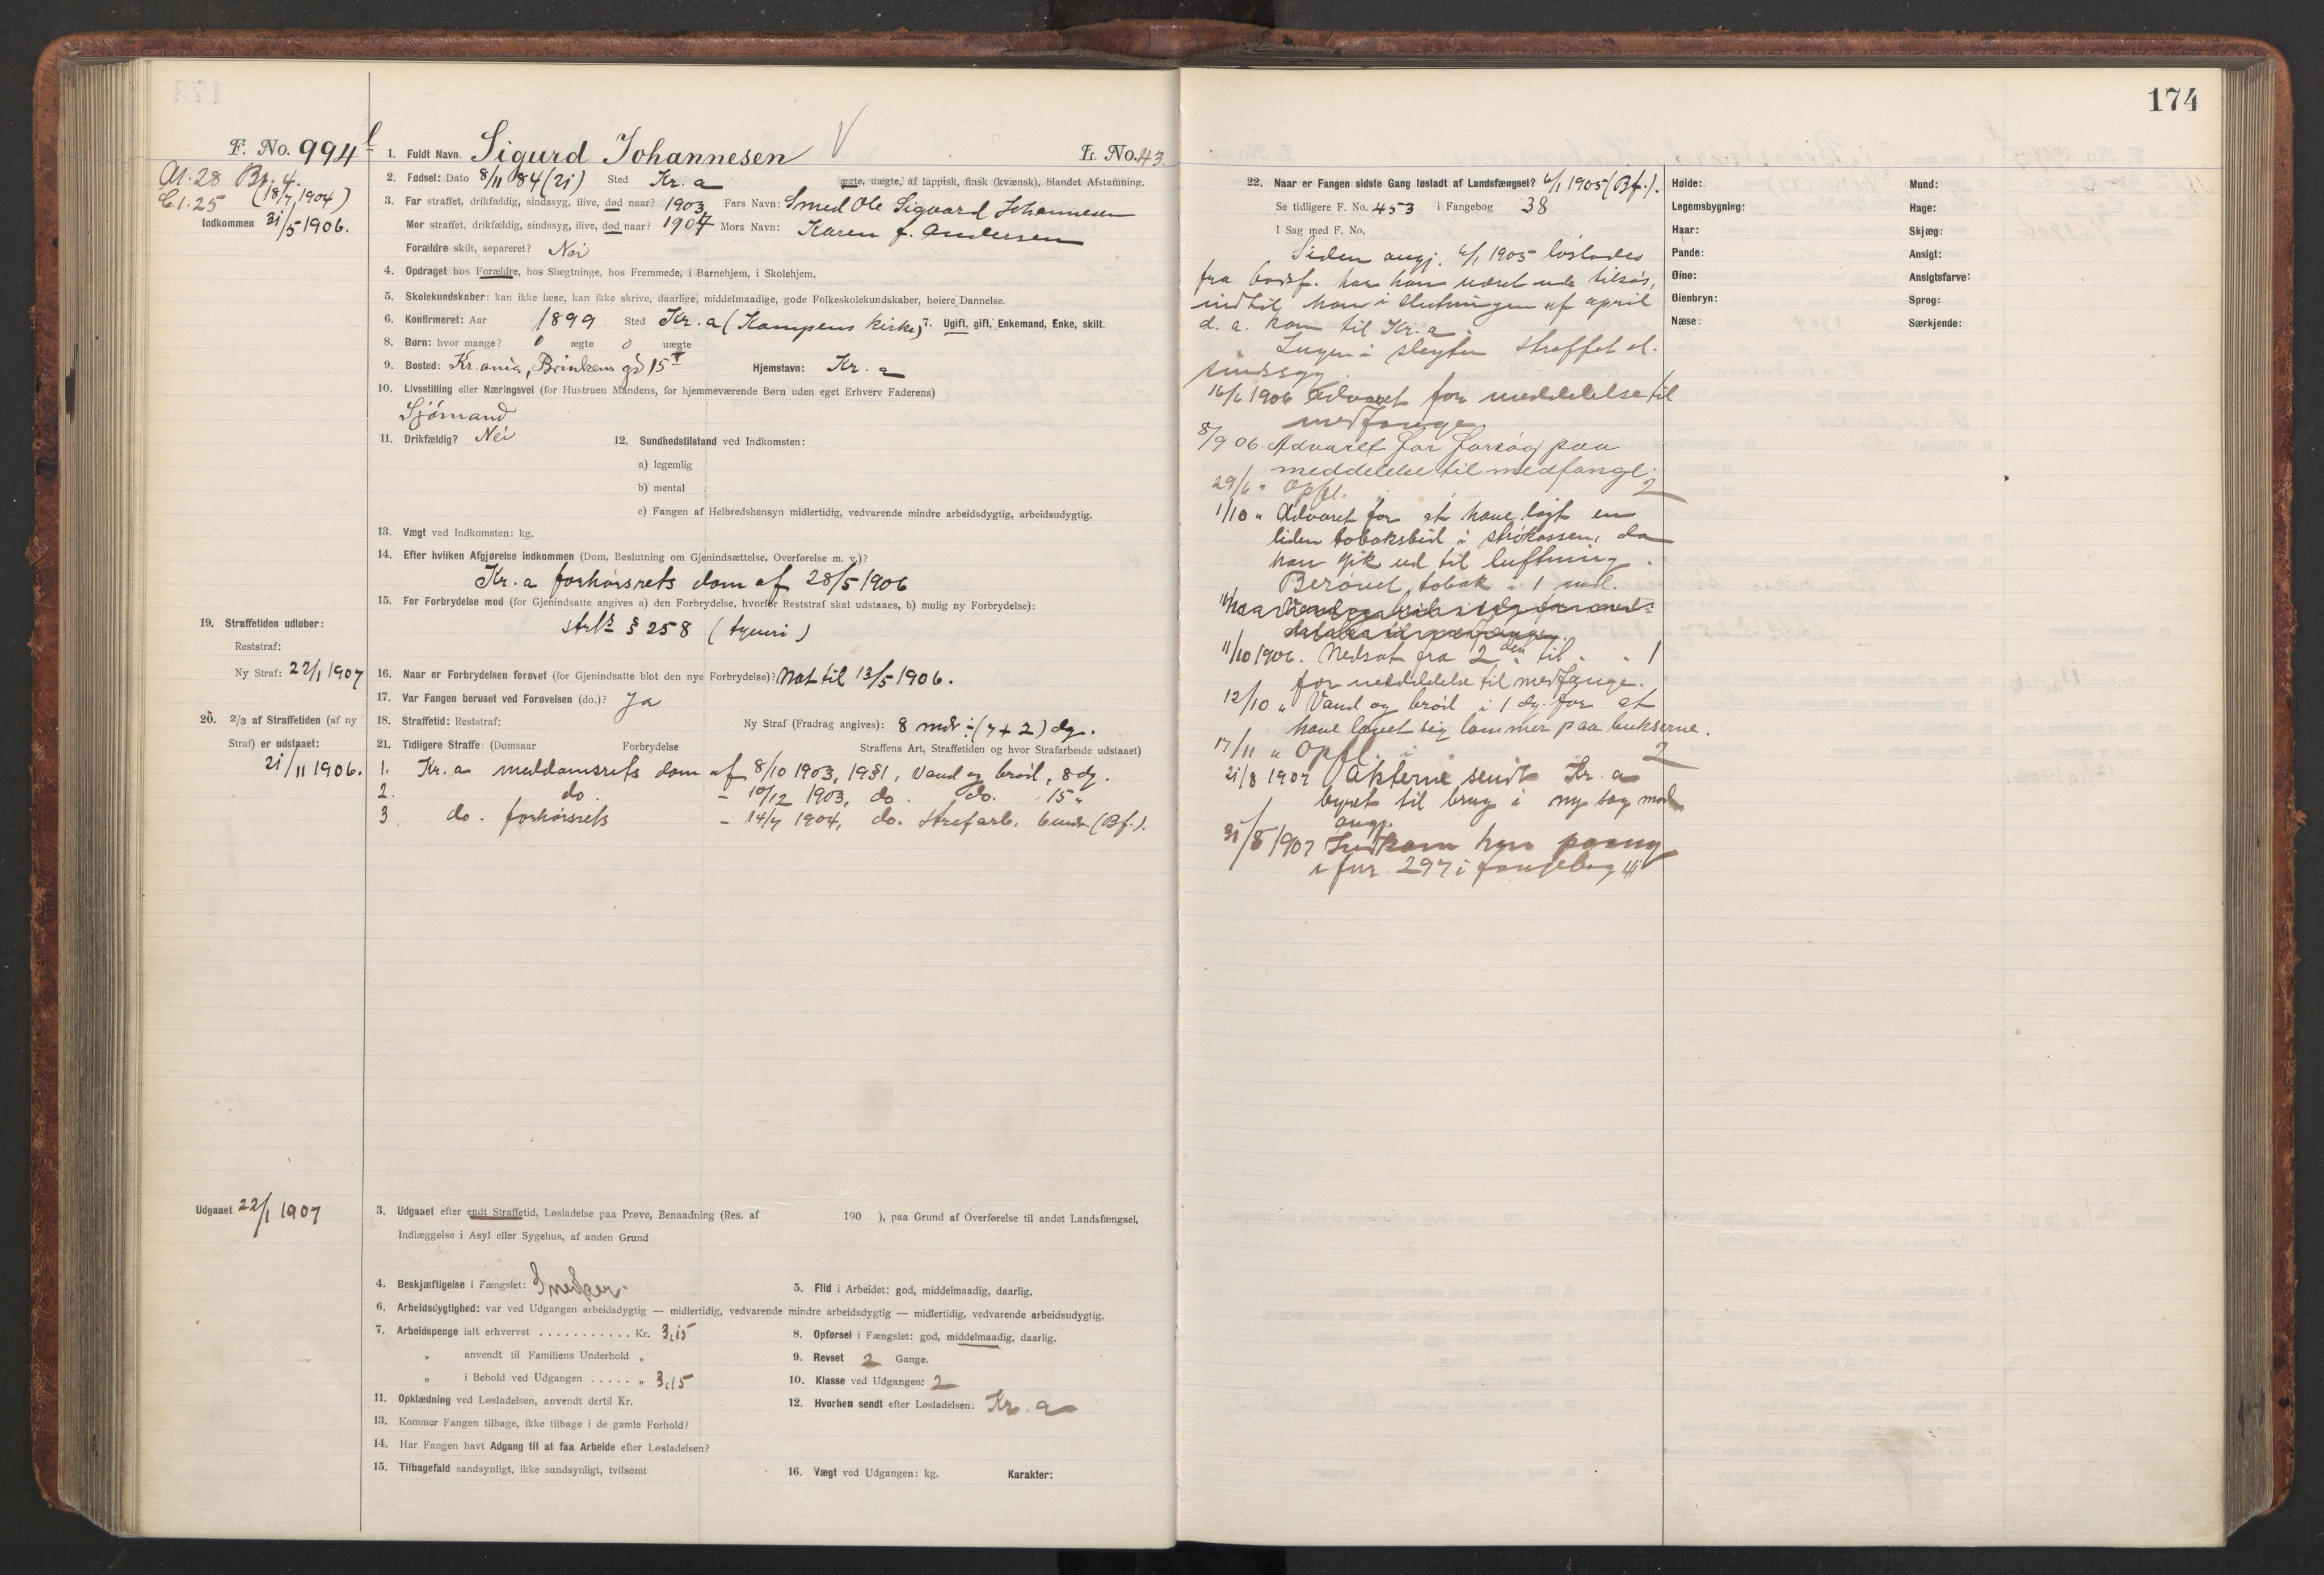 174
F. No. 994
1. Fuldt Navn. Sigurd Johannesen V L. No. 43.
A1. 28 Br. 4.
C1. 25 (18/7 1904)
Indkommen 31/5 1906.
2. Fødsel: Dato 8/11 84 (21) Sted Kr.a ægte, uægte, af lappisk, finsk (kvænsk), blandet Afstamning.
3. Far straffet, drikfældig, sindssyg, ilive, død naar? 1903 Fars Navn: Smed Ole Sigvard Johannesen
Mor straffet, drikfældig, sindssyg, ilive, død naar? 1904 Mors Navn: Karen f. Andersen
Forældre skilt, separeret? Nei
4. Opdraget hos Forældre, hos Slægtninge, hos Fremmede, i Barnehjem, i Skolehjem.
5. Skolekundskaber: kan ikke læse, kan ikke skrive, daarlige, middelmaadige, gode Folkeskolekundskaber, høiere Dannelse.
6. Konfirmeret: Aar 1899 Sted Kr.a (Kampens kirke) 7. Ugift, gift, Enkemand, Enke, skilt.
8. Børn: hvor mange? 0 ægte 0 uægte
9. Bosted: Kr.ania, Brinkens gd 15 Hjemstavn: Kr.a
10. Livsstilling eller Næringsvei (for Hustruen Mandens, for hjemmeværende Børn uden eget Erhverv Faderens)
Sjømand
11. Drikfældig? Nei 12. Sundhedstilstand ved Indkomsten:
a) legemlig
b) mental
c) Fangen af Helbredshensyn midlertidig, vedvarende mindre arbeidsdygtig, arbeidsudygtig.
13. Vægt ved Indkomsten: kg.
14. Efter hvilken Afgjørelse indkommen (Dom, Beslutning om Gjenindsættelse, Overførelse m. v.)?
Kr.a forhørsrets dom af 28/5 1906
15. For Forbrydelse mod (for Gjenindsatte angives a) den Forbrydelse, hvorfor Reststraf skal udstaaes, b) mulig ny Forbrydelse):
strl's § 258 (tyveri)
19. Straffetiden udløber:
Reststraf:
Ny Straf: 22/1 1907
16. Naar er Forbrydelsen forøvet (for Gjenindsatte blot den nye Forbrydelse)? Nat til 13/5 1906.
17. Var Fangen beruset ved Forøvelsen (do.)? Ja
20. 2/3 af Straffetiden (af ny
Straf) er udstaaet:
21/11 1906.
18. Straffetid: Reststraf: Ny Straf (Fradrag angives): 8 mdr ÷ (7 + 2) dg.
21. Tidligere Straffe: (Domsaar Forbrydelse Straffens Art, Straffetiden og hvor Strafarbeide udstaaet)
1. Kr.a meddomsrets dom af 8/10 1903, , Vand og brød, 8 dg.
2. do. - 10/12 1903, do. do. 15 "
3. do. forhørsrets - 14/7 1904, do. Strafarb. 6 mdr (Bf.).
Udgaaet 22/1 1907
3. Udgaaet efter endt Straffetid, Løsladelse paa Prøve, Benaadning (Res. af 190 ), paa Grund af Overførelse til andet Landsfængsel,
Indlæggelse i Asyl eller Sygehus, af anden Grund
4. Beskjæftigelse i Fængslet: Snekker. 5. Flid i Arbeidet: god, middelmaadig, daarlig.
6. Arbeidsdygtighed: var ved Udgangen arbeidsdygtig — midlertidig, vedvarende mindre arbeidsdygtig — midlertidig, vedvarende arbeidsudygtig.
7. Arbeidspenge ialt erhvervet ........... Kr. 3,15 8. Opførsel i Fængslet: god, middelmaadig, daarlig.
" anvendt til Familiens Underhold " 9. Revset 2 Gange.
" i Behold ved Udgangen ..... " 3,15 10. Klasse ved Udgangen: 2
11. Opklædning ved Løsladelsen, anvendt dertil Kr. 12. Hvorhen sendt efter Løsladelsen: Kr.a
13. Kommer Fangen tilbage, ikke tilbage i de gamle Forhold?
14. Har Fangen havt Adgang til at faa Arbeide efter Løsladelsen?
15. Tilbagefald sandsynligt, ikke sandsynligt, tvilsomt 16. Vægt ved Udgangen: kg. Karakter:
22. Naar er Fangen sidste Gang løsladt af Landsfængsel? 6/1 1905 (Bf.).
Se tidligere F. No. 453 i Fangebog 38
I Sag med F. No.
Siden angj. 6/1 1905 løslodes
fra bodsf. har han været ude tilsøs,
indtil han i slutningen af april
d. a. kom til Kr.a.
Ingen i slegten straffet el.
sindssyg.
16/6 1906 Advaret for meddelelse til
medfange
8/9 06. Advaret for forsøg paa
meddelelse til medfange.
29/6 " Opfl. 2
1/10 " Advaret for at have lagt en
liden tobaksbid i skokassen, da
han gik ud til luftning.
Berøvet tobak i 1 md.
11/10 1906. Nedsat fra 2den til " " 1
for meddelelse til medfange.
12/10 " Vand og brød i 1 dg. for at
have lavet sig lommer paa bukserne.
17/11 " Opfl. 2
21/8 1907 Akterne sendt Kr.a
byret til brug i ny sag mod
angj.
31/8 1907 Indkom hun paany
i fnr. 297 i fangebog
Høide: Mund:
Legemsbygning: Hage:
Haar: Skjæg:
Pande: Ansigt:
Øine: Ansigtsfarve:
Øienbryn: Sprog:
Næse: Særkjende: